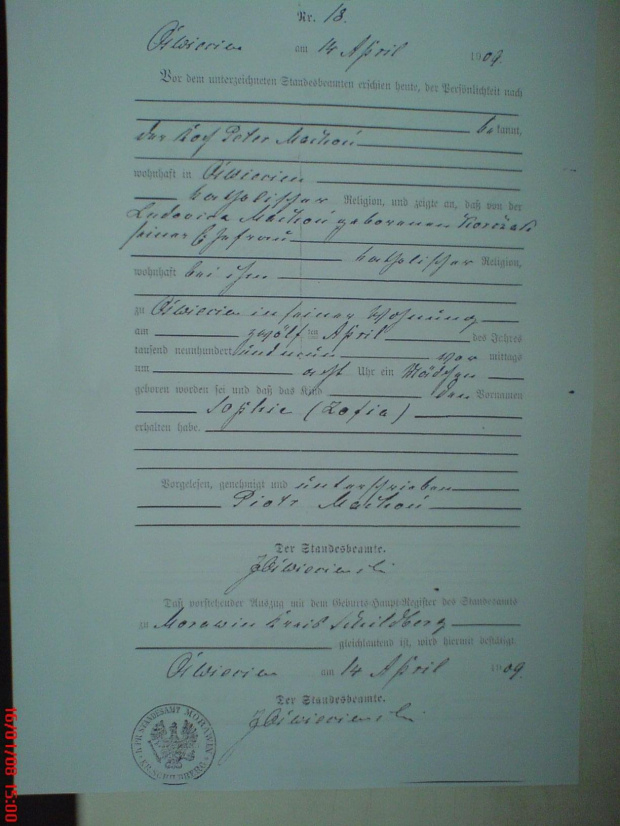 Nr. 18.
am 14 April 1909.
Vor dem unterzeichneten Standesbeamten erschien heute, der Persönlichkeit nach
bekannt,
der Peter
wohnhaft in
katholischer Religion, und zeigte an, daß von der
Ludovica geborenen
seiner Ehefrau
katholischer Religion,
wohnhaft bei ihm
zu in seiner Wohnung
am zwölften April des Jahres
tausend neunhundert und neun vor mittags
um acht Uhr ein Mädchen
geboren worden sei und daß das Kind den Vornamen
Sophie (Zofia)
erhalten habe.
Vorgelesen, genehmigt und unterschrieben
Piotr
Der Standesbeamte.
Daß vorstehender Auszug mit dem Geburts-Haupt-Register des Standesamts
zu Morawin Kreis Schildberg
gleichlautend ist, wird hiermit bestätigt.
am 14 April 1909.
Der Standesbeamte.
K. PR. STANDESAMT MORAWIN
KR. SCHILDBERG
16/01/08 15:00